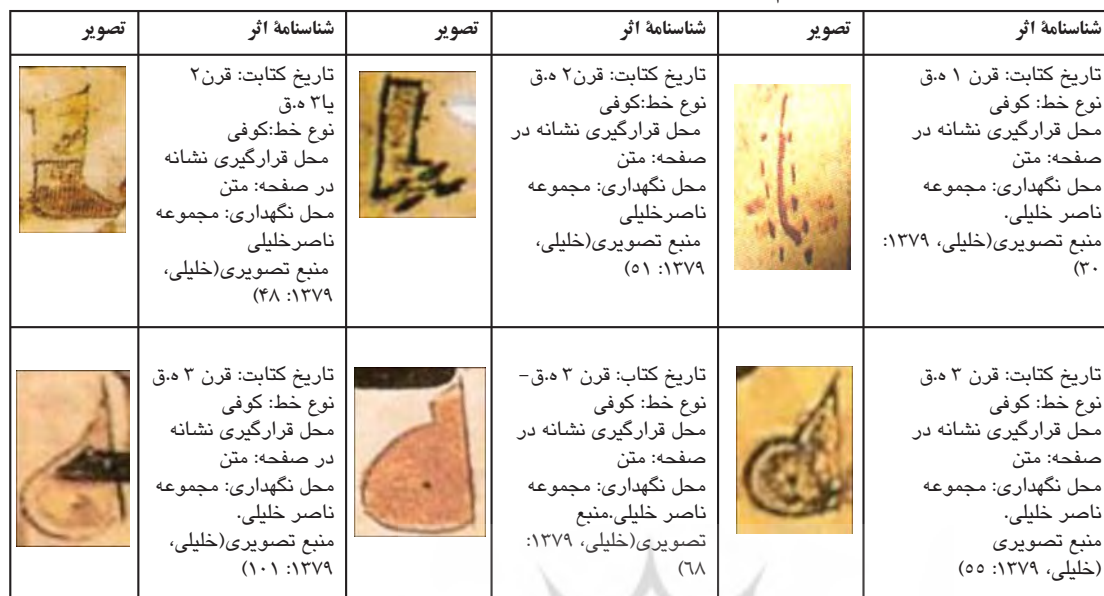 شناسنامهٔ اثر
تصویر
شناسنامهٔ اثر
تصویر
شناسنامهٔ اثر
تصویر
تاریخ کتابت: قرن ۱ ه.ق
نوع خط: کوفی
محل قرارگیری نشانه در
صفحه: متن
محل نگهداری: مجموعه
ناصر خلیلی.
منبع تصویری(خلیلی، ۱۳۷۹:
۳۰)
تاریخ کتابت: قرن۲ ه.ق
نوع خط:کوفی
محل قرارگیری نشانه در
صفحه: متن
محل نگهداری: مجموعه
ناصرخلیلی
منبع تصویری(خلیلی،
۱۳۷۹: ۵۱)
تاریخ کتابت: قرن۲
یا۳ ه.ق
نوع خط:کوفی
محل قرارگیری نشانه
در صفحه: متن
محل نگهداری: مجموعه
ناصرخلیلی
منبع تصویری(خلیلی،
۱۳۷۹: ۴۸)
تاریخ کتابت: قرن ۳ ه.ق
نوع خط: کوفی
محل قرارگیری نشانه در
صفحه: متن
محل نگهداری: مجموعه
ناصر خلیلی.
منبع تصویری
(خلیلی، ۱۳۷۹: ۵۵)
تاریخ کتاب: قرن ۳ ه.ق-
نوع خط: کوفی
محل قرارگیری نشانه در
صفحه: متن
محل نگهداری: مجموعه
ناصر خلیلی.منبع
تصویری(خلیلی، ۱۳۷۹:
۶۸)
تاریخ کتابت: قرن ۳ ه.ق
نوع خط: کوفی
محل قرارگیری نشانه
در صفحه: متن
محل نگهداری: مجموعه
ناصر خلیلی.
منبع تصویری(خلیلی،
۱۳۷۹: ۱۰۱)